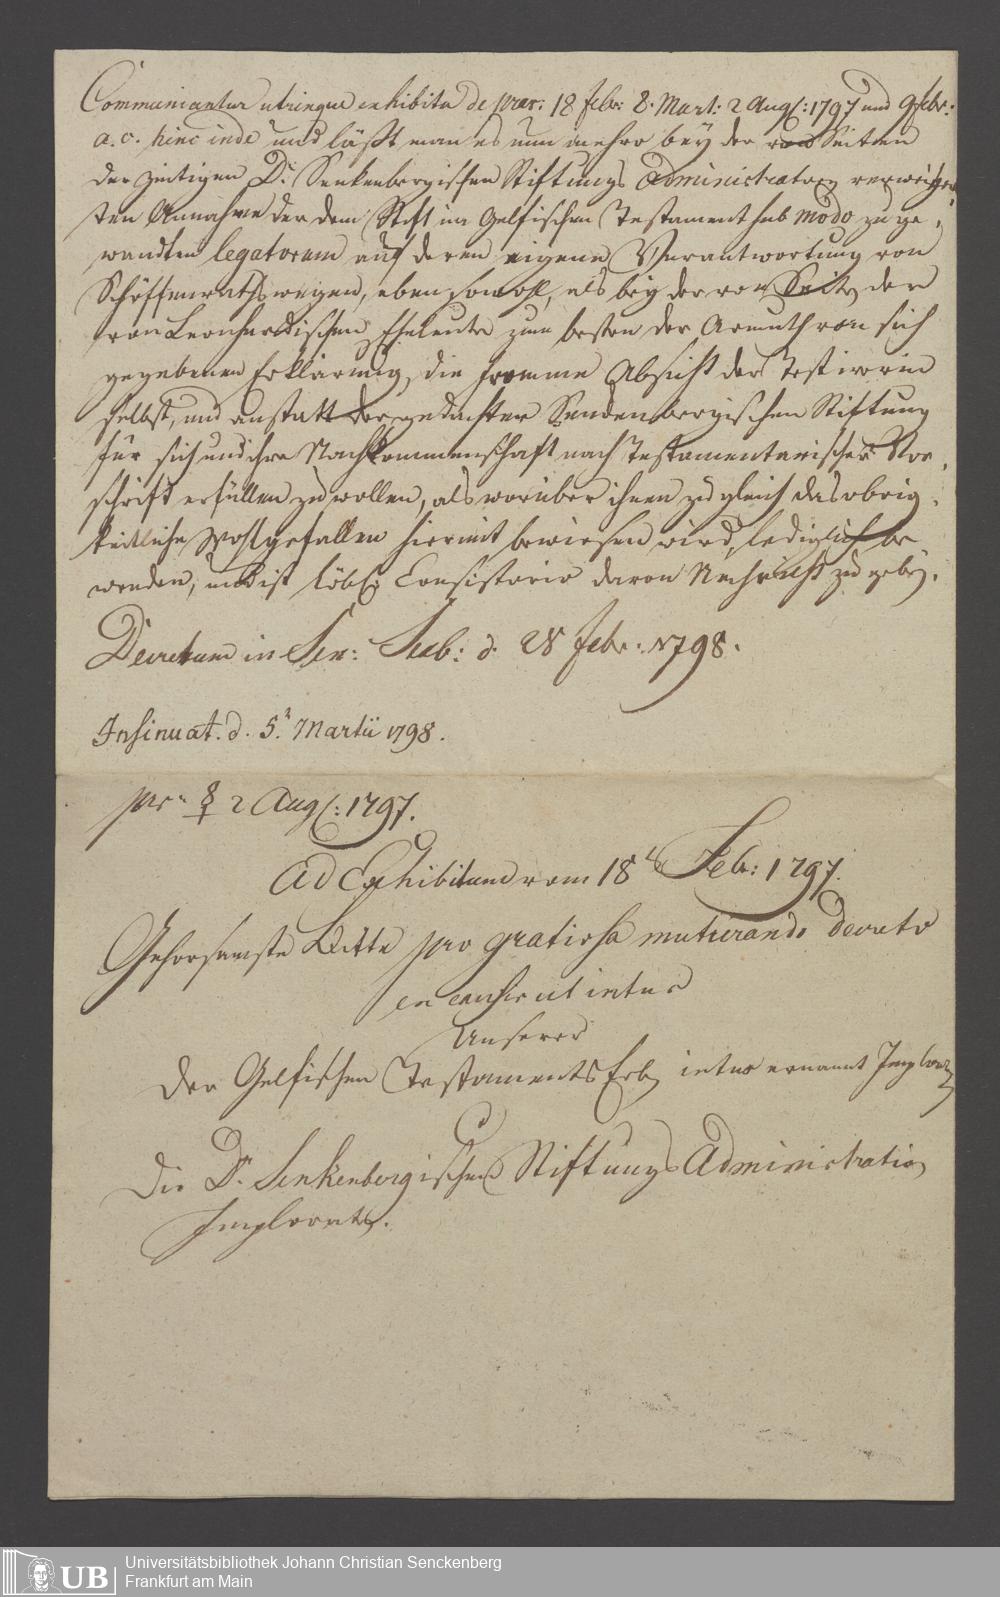 Communicantur utrinque exhibita de præs: 18 Febr: 8. Mart: 2 Aug: 1797 und 9 Febr:
a. c. hinc inde und läßt man es nun mehro bey der von Seiten
der zeitigen Dr. Senkenbergischen Stiftungs Administration verweiger,
ten Annahme der dem Stift im Gelfischen Testament sub modo zu ge,
wandten legatorum auf deren eigene Verantwortung von
Schöffenrathswegen, eben sowohl, als bey der von Seite der
von Leonhardischen Eheleute zum besten der Armuth von sich
gegebenen Erklärung, die fromme Absicht der Testirerin
selbst, und anstatt der gedachten Senckenbergischen Stiftung
für sich und ihre Nachkommenschaft nach Testamentarischer Vor,
schrift erfüllen zu wollen, als worüber ihnen zugleich das obrig,
keitliche Wohlgefallen hiermit bewiesen wird, lediglich be
wenden, und ist löbl. Consistorio davon Nachricht zu geben.
Decretum in Sen: Scab: d. 28 Febr: 1798.
Insinuat. d. 5. Martii 1798.
pr. ☿ 2 Aug: 1797.
Ad Exhibitum vom 18 Febr: 1797.
Gehorsamste Bitte pro gratiose maturando decreto
in causa ut intus
Unserer
Der Gelfischen Testaments Erben intus ernannt Imploranten
Die Dr. Senkenbergischen Stiftungs Administration
Imploraten.
UB
Universitätsbibliothek Johann Christian Senckenberg
Frankfurt am Main